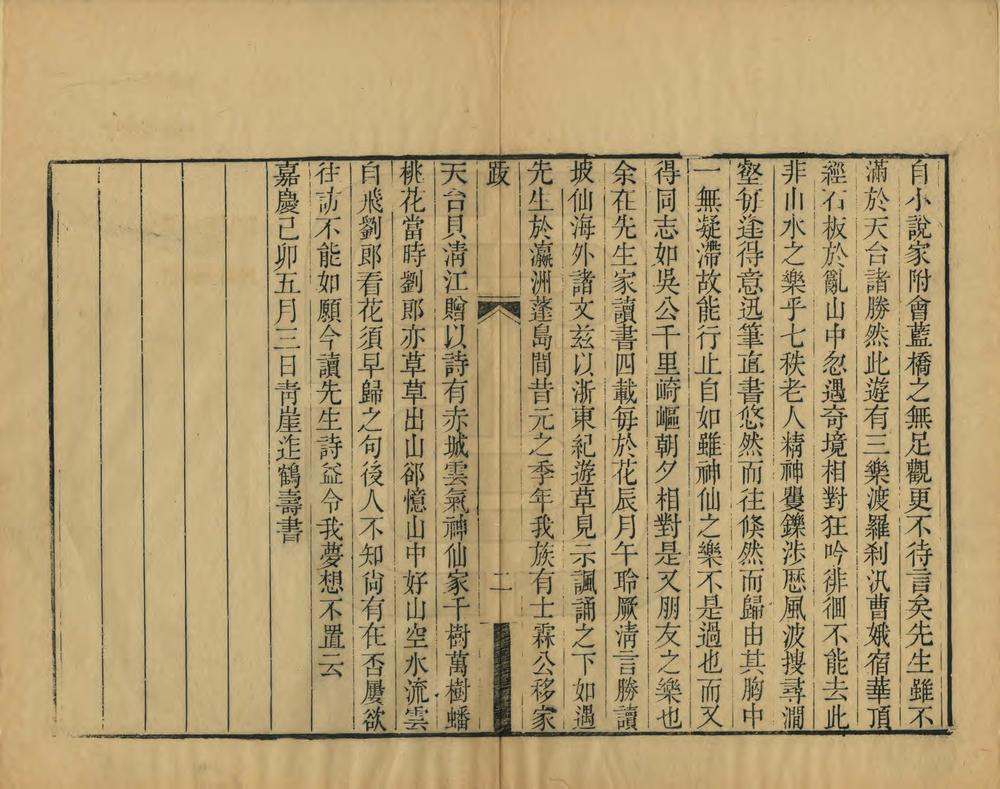 自小說家附會藍橋之無足觀更不待言矣先生雖不
滿於天台諸勝然此遊有三樂渡羅刹汎曹娥宿華頂
經石板於亂山中忽遇奇境相對狂吟徘徊不能去此
非山水之樂乎七秩老人精神矍鑠涉歷風波搜尋澗
壑每逢得意迅筆直書悠然而往倏然而歸由其胸中
一無凝滯故能行止自如雖神仙之樂不是過也而又
得同志如吳公千里崎嶇朝夕相對是又朋友之樂也
余在先生家讀書四載每於花辰月午聆厥清言勝讀
坡仙海外諸文茲以浙東紀遊草見示諷誦之下如遇
先生於瀛洲蓬島間昔元之季年我族有士霖公移家
跋
二
天台貝清江贈以詩有赤城雲氣神仙家千樹萬樹蟠
桃花當時劉郎亦草草出山郤憶山中好山空水流雲
自飛劉郎看花須早歸之句後人不知尙有在否屢欲
往訪不能如願今讀先生詩益令我夢想不置云
嘉慶己卯五月三日靑崖迮鶴壽書